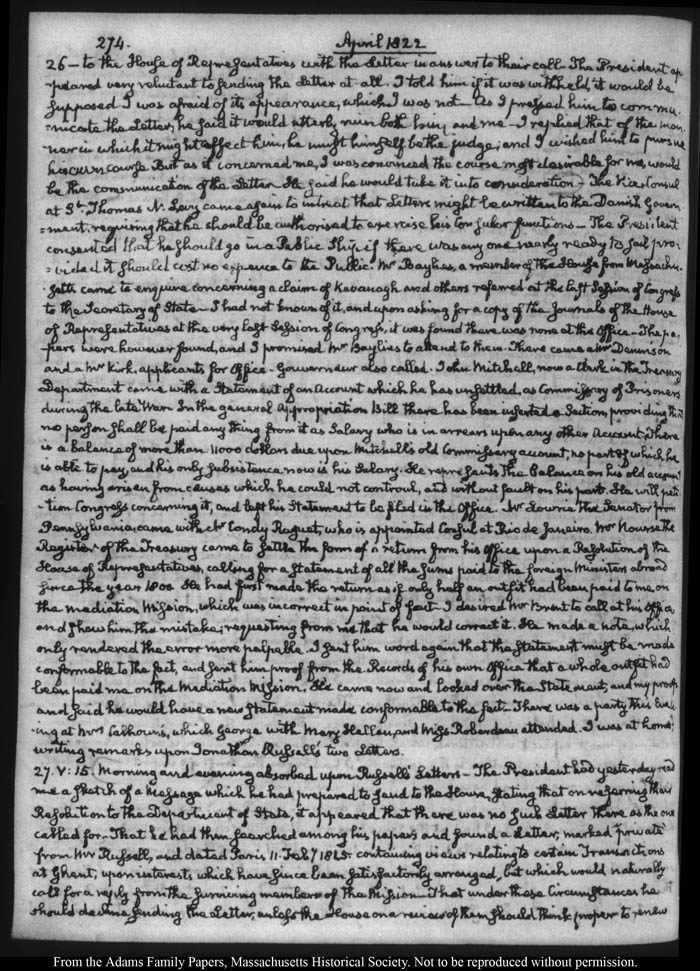 274. April 1822
26 — to the House of Representatives with the Letter in answer to their call. The President ap
peared very reluctant to sending the Letter at all. I told him if it was withheld, it would be
supposed I was afraid of its appearance, which I was not — As I pressed him to commu
=nicate the Letter, he said it would utterly ruin both him and me — I replied that of the man
ner in which it might affect him, he must himself be the judge; and I wished him to pursue
his own course. But as it concerned me, I was convinced the course most desirable for me, would
be the communication of the Letter. He said he would take it into consideration — The Vice Consul
at St. Thomas N. Levy came again to intreat that Letters might be written to the Danish Govern
=ment, requiring that he should be authorised to exercise his Consular functions — The President
consented that he should go in a Public Ship if there was any one nearly ready to sail pro:
=vided it should cost no expence to the Public. Mr Baylies, a member of the House from Massachu
setts came to enquire concerning a claim of Kavanagh and others referred at the last Session of Congress
to the Secretary of State — I had not known of it, and upon asking for a copy of the Journals of the House
of Representatives at the very last Session of Congress, it was found there was none at the Office — The pa:
pers were however found, and I promised Mr Baylies to attend to them. There came a Mr Dennison
and a Mr Kirk, applicants for Office — Gouverneur also called. John Mitchell, now a Clerk in the Treasury
Department came with a Statement of an Account which he has unsettled, as Commissary of Prisoners
during the late War. In the general Appropriation Bill there has been inserted a Section, providing that
no person shall be paid any thing from it as Salary who is in arrears upon any other Account, There
is a balance of more than 11000 dollars due upon Mitchell's old Commissary account, no part of which he
is able to pay, and his only subsistence now is his Salary. He represents the Balance on his old account
as having arisen from causes which he could not controul, and without fault on his part. He will peti
-tion Congress concerning it, and left his Statement to be filed in the Office. Mr Lowrie the Senator from
Pennsylvania, came with Mr Condy Raguet, who is appointed Consul at Rio de Janeiro. Mr Nourse the
Register of the Treasury came to settle the form of a return from his Office upon a Resolution of the
House of Representatives, calling for a Statement of all the sums paid to the foreign Ministers abroad
since the year 1800. He had first made the return as if only half an outfit had been paid to me, on
the mediation Mission, which was incorrect in point of fact. I desired Mr Brent to call at his Office
and shew him the mistake, requesting from me that he would correct it. He made a note, which
only rendered the error more palpable. I sent him word again that the Statement must be made
conformable to the fact, and sent him proof from the Records of his own Office that a whole outfit had
been paid me on the Mediation Mission. He came now and looked over the Statement, and my proofs
and said he would have a new Statement made conformable to the fact — There was a party this Even
ing at Mrs Calhoun's, which George with Mary Hellen, and Miss Roberdeau attended. I was at home,
writing remarks upon Jonathan Russell's two Letters.
27. V: 15. Morning and evening absorbed upon Russell's Letters — The President had yesterday read
me a sketch of a Message which he had prepared to send to the House, stating that on referring their
Resolution to the Department of State, it appeared that there was no such Letter there as the one
called for — That he had then searched among his papers and found a Letter, marked private
from Mr Russell, and dated Paris 11. Feby 1815. containing views relating to certain Transactions
at Ghent, upon interests, which have since been satisfactorily arranged, but which would naturally
call for a reply from the surviving members of the Mission. That under these Circumstances he
should decline sending the Letter, unless the House on a review of them should think proper to renew
From the Adams Family Papers, Massachusetts Historical Society. Not to be reproduced without permission.